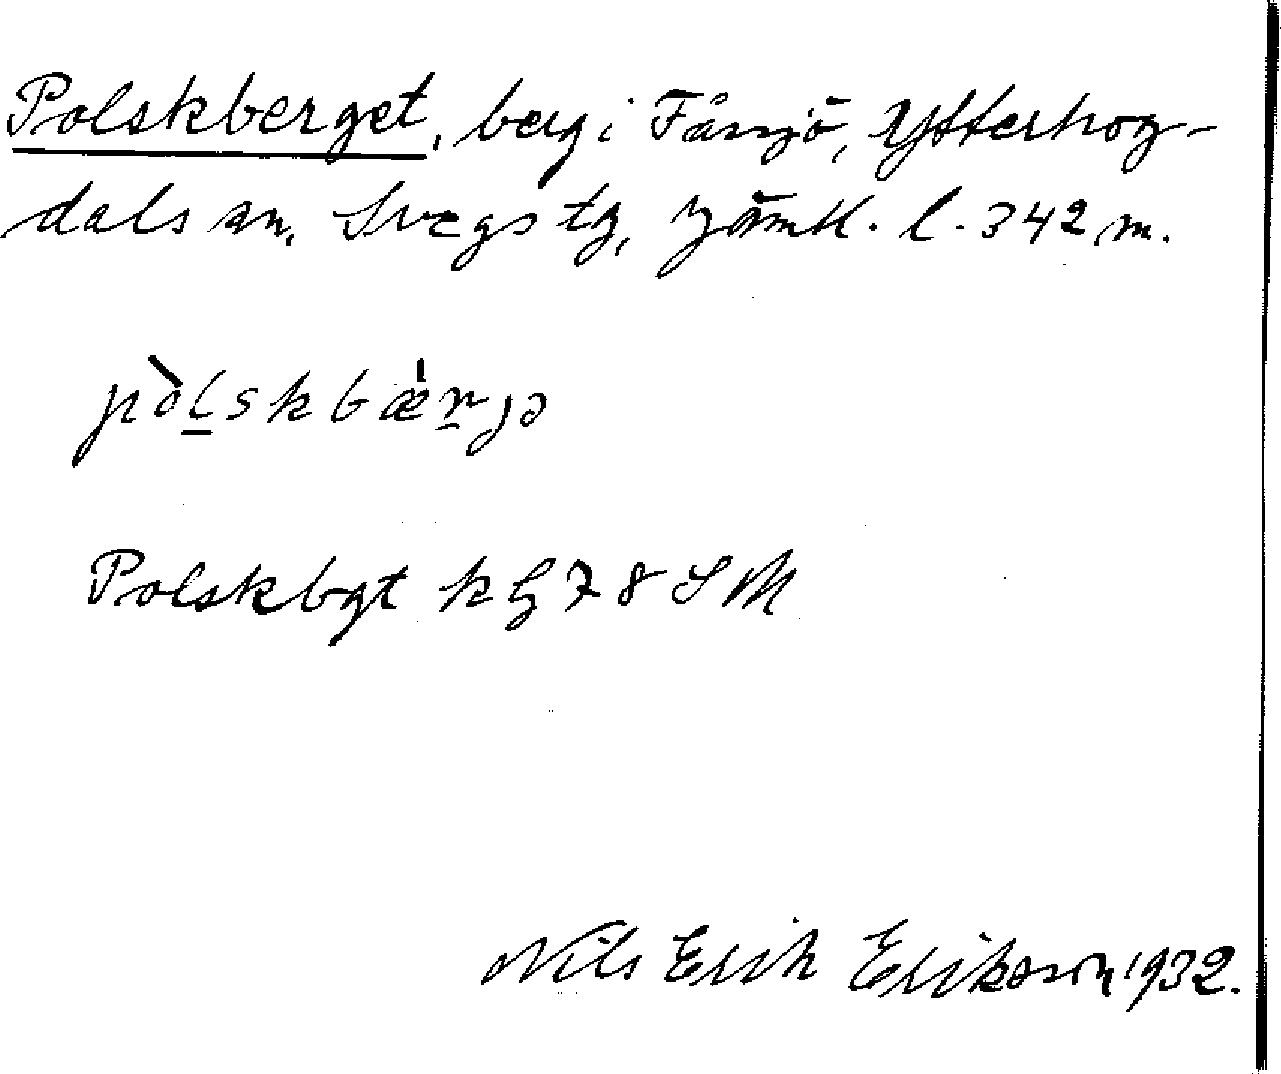 Polskberget, berg i Fånsjö, Ytterhog-
dals sn, Svegs tg, Jämtl. l. 342 m.
pòlskbæ̍rjə
Polskbgt k bl 78 SM
Nils Erik Erikson 1932.